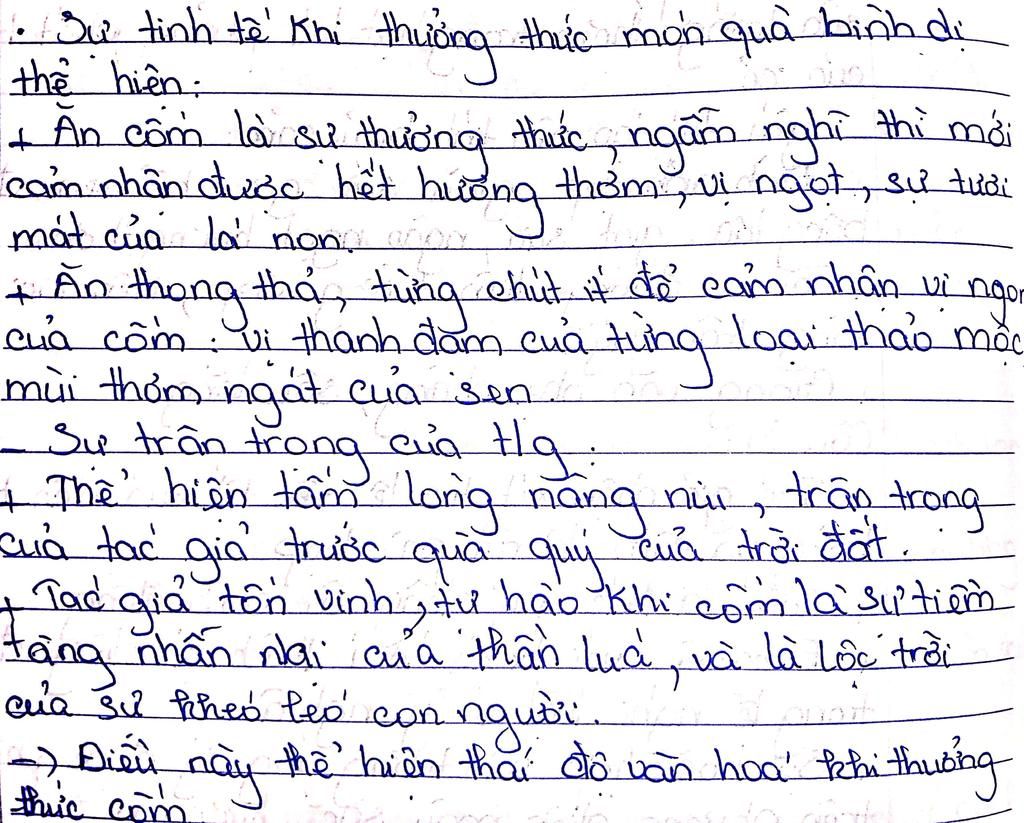 . Sự tinh tế khi thưởng thức món quà bình dị
thể hiện:
+ Ăn cốm là sự thưởng thức, ngẫm nghĩ thì mới
cảm nhận được hết hương thơm, vị ngọt, sự tươi
mát của lá non.
+ Ăn thong thả, từng chút ít để cảm nhận vị ngon
của cốm: vị thanh đạm của từng loại thảo mộc,
mùi thơm ngát của sen.
- Sự trân trọng của t/g:
+ Thể hiện tấm lòng nâng niu, trân trọng
của tác giả trước quà quý của trời đất.
+ Tác giả tôn vinh, tự hào khi cốm là sự tiềm
tàng nhẫn nại của thần lúa, và là lộc trời
của sự khéo léo con người.
-> Điều này thể hiện thái độ văn hoá khi thưởng
thức cốm